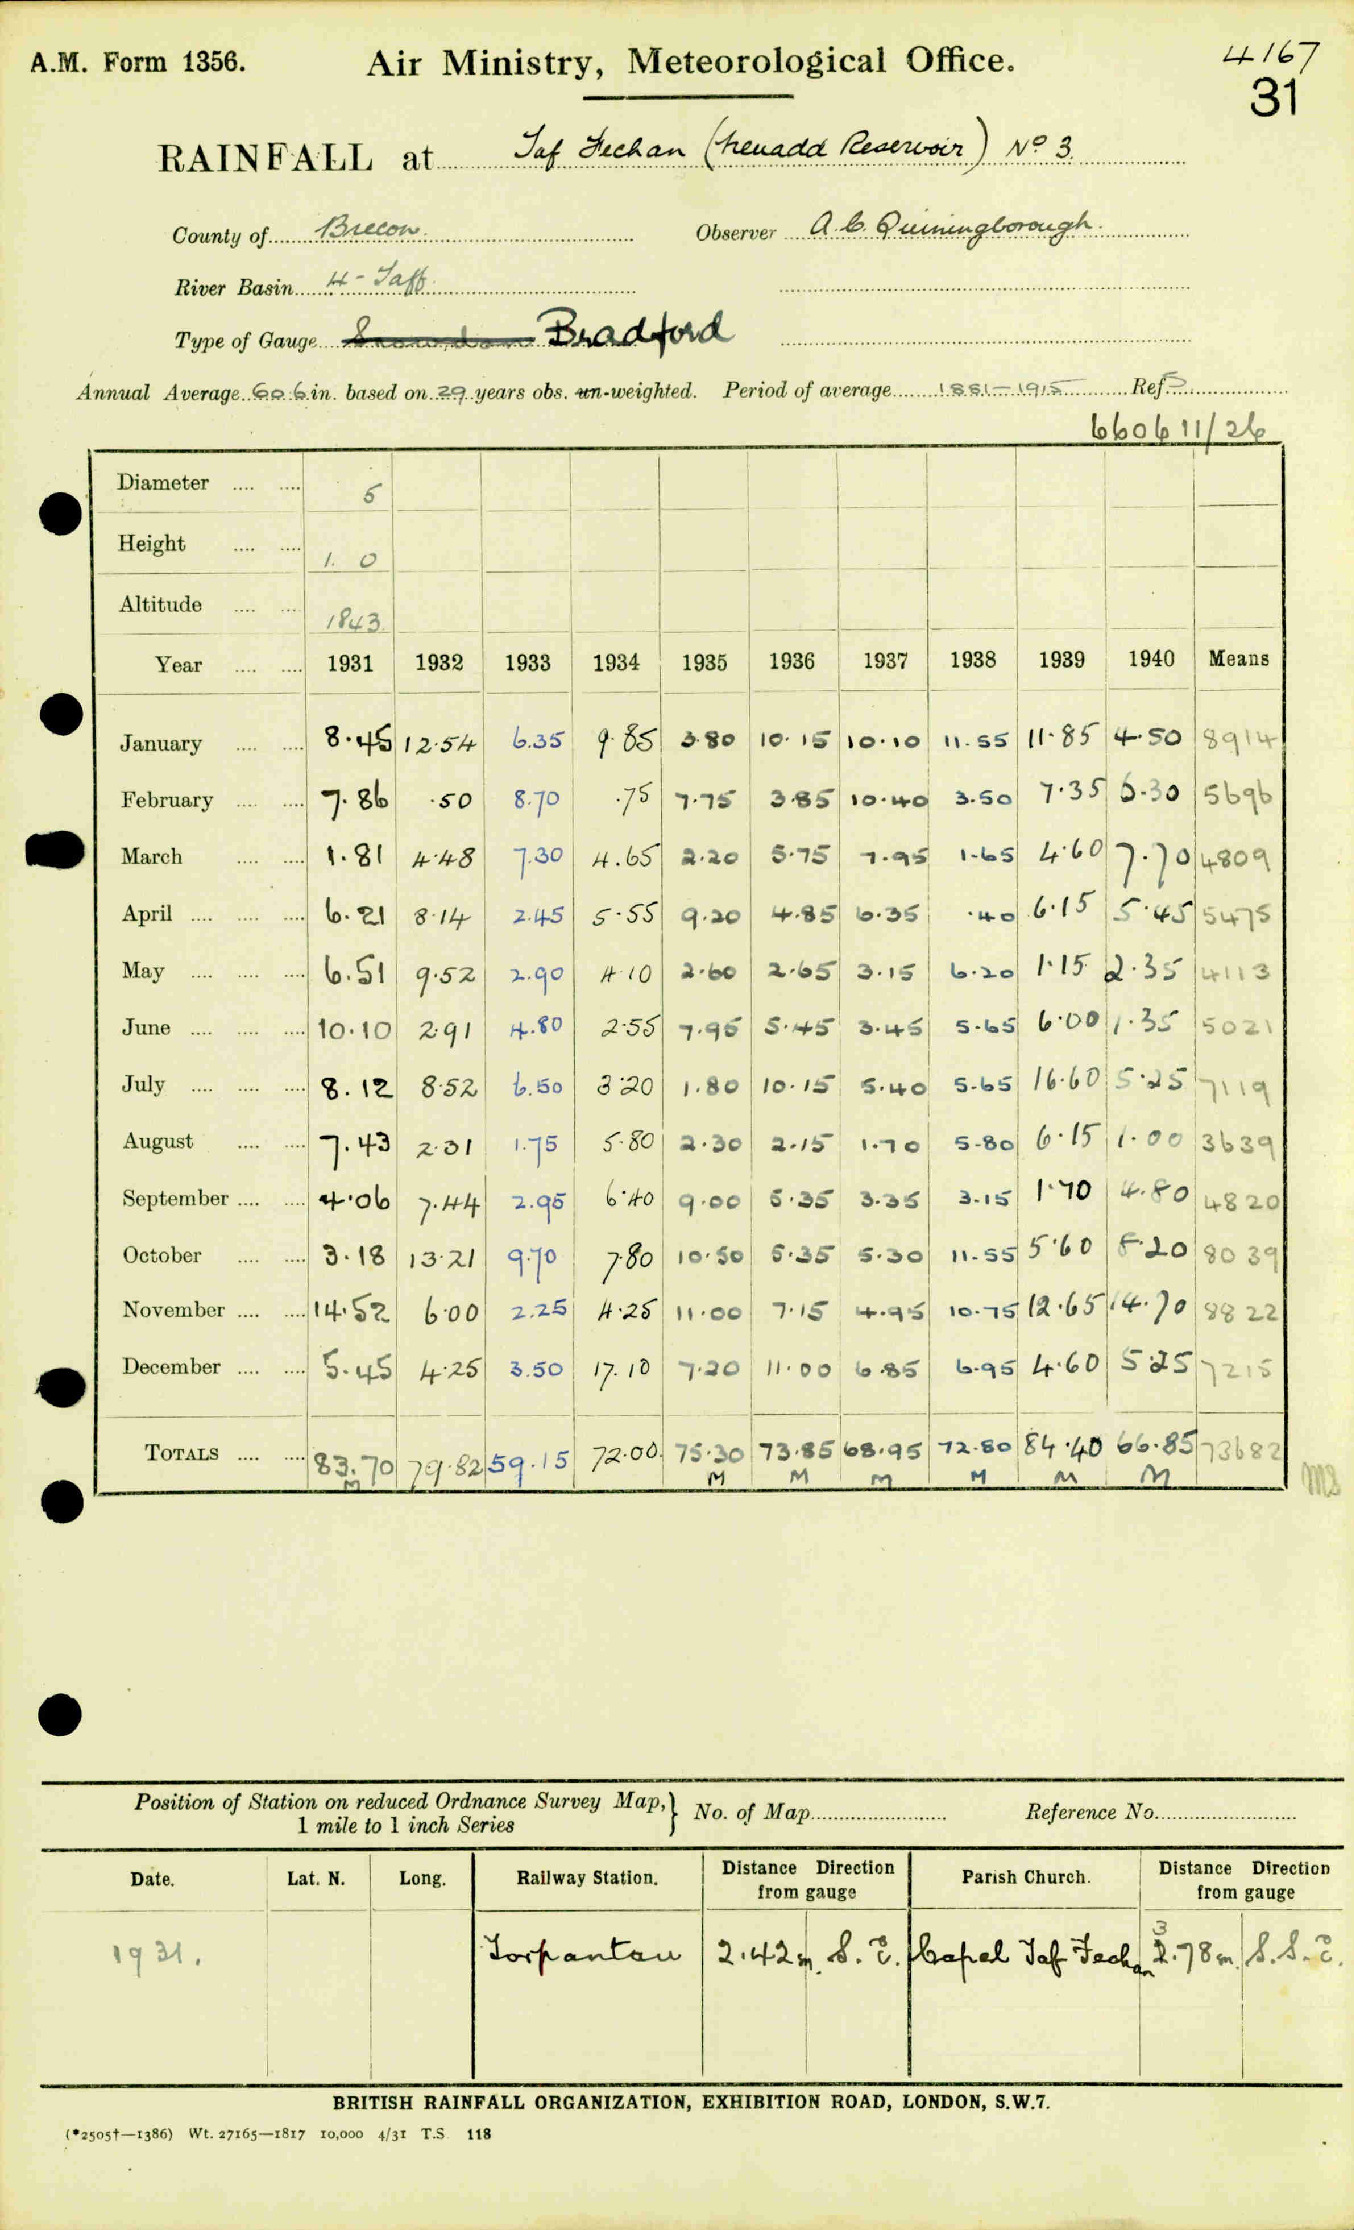 A.M. Form 1356. Air Ministry, Meteorological Office. 4167
31
RAINFALL at Taf Fechan (Neuadd Reservoir) No 3
County of Brecon Observer A C Quiningborough
River Basin 4 - Taff
Type of Gauge Snowdon Bradford
Annual Average 60.6 in. based on 29 years obs. un-weighted. Period of average 1881-1915 Ref 5
660611/26
Diameter 5
Height 1. 0
Altitude 1843
Year 1931 1932 1933 1934 1935 1936 1937 1938 1939 1940 Means
January 8.45 12.54 6.35 9.85 3.80 10.15 10.10 11.55 11.85 4.50 8914
February 7.86 .50 8.70 .75 7.75 3.85 10.40 3.50 7.35 6.30 5696
March 1.81 4.48 7.30 4.65 2.20 5.75 7.95 1.65 4.60 7.70 4809
April 6.21 8.14 2.45 5.55 9.20 4.85 6.35 .40 6.15 5.45 5475
May 6.51 9.52 2.90 4.10 2.60 2.65 3.15 6.20 1.15 2.35 4113
June 10.10 2.91 4.80 2.55 7.95 5.45 3.45 5.65 6.00 1.35 5021
July 8.12 8.52 6.50 3.20 1.80 10.15 5.40 5.65 16.60 5.25 7119
August 7.43 2.31 1.75 5.80 2.30 2.15 1.70 5.80 6.15 1.00 3639
September 4.06 7.44 2.95 6.40 9.00 5.35 3.35 3.15 1.70 4.80 4820
October 3.18 13.21 9.70 7.80 10.50 5.35 5.30 11.55 5.60 8.20 8039
November 14.52 6.00 2.25 4.25 11.00 7.15 4.95 10.75 12.65 14.70 8822
December 5.45 4.25 3.50 17.10 7.20 11.00 6.85 6.95 4.60 5.25 7215
TOTALS 83.70 79.82 59.15 72.00 75.30 73.85 68.95 72.80 84.40 66.85 73682
M M M M M M M
Position of Station on reduced Ordnance Survey Map, } No. of Map Reference No.
1 mile to 1 inch Series
Date. Lat. N. Long. Railway Station. Distance Direction from gauge Parish Church. Distance Direction from gauge
1931. Torpantau 2.42m. S. E. Capel Taf Fechan 3.78m. S.S.E.
BRITISH RAINFALL ORGANIZATION, EXHIBITION ROAD, LONDON, S.W.7.
(*2505†—1386) Wt. 27165—1817 10,000 4/31 T.S. 118